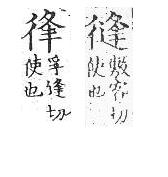 敷容切
使也
孚逢切
使也